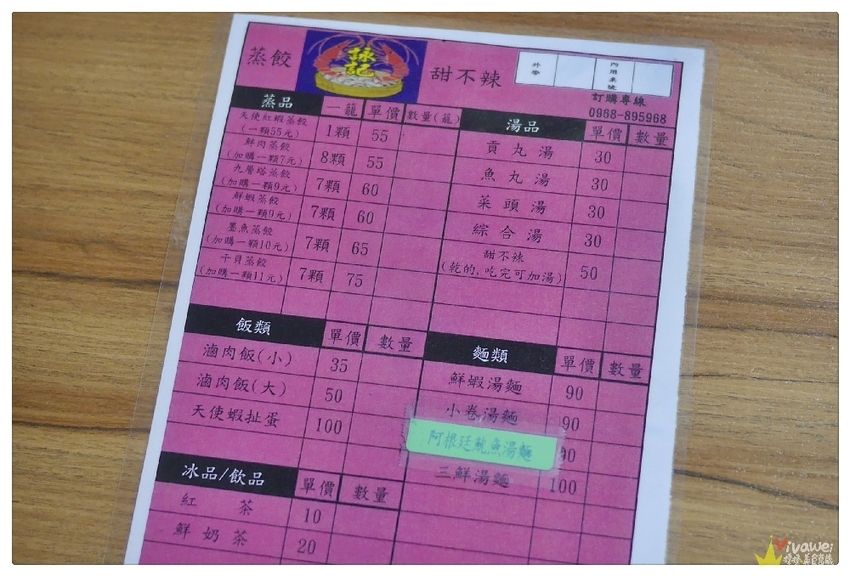 蒸餃
詠記
甜不辣
外帶
內用桌號
訂購專線
0968-895968
蒸品 一籠 單價 數量(籠)
天使紅蝦蒸餃
(一顆55元) 1顆 55
鮮肉蒸餃
(加購一顆7元) 8顆 55
九層塔蒸餃
(加購一顆9元) 7顆 60
鮮蝦蒸餃
(加購一顆9元) 7顆 60
墨魚蒸餃
(加購一顆10元) 7顆 65
干貝蒸餃
(加購一顆11元) 7顆 75
湯品 單價 數量
貢丸湯 30
魚丸湯 30
菜頭湯 30
綜合湯 30
甜不辣
(乾的,吃完可加湯) 50
飯類 單價 數量
滷肉飯(小) 35
滷肉飯(大) 50
天使蝦扯蛋 100
麵類 單價 數量
鮮蝦湯麵 90
小卷湯麵 90
阿根廷魷魚湯麵 90
三鮮湯麵 100
冰品/飲品 單價 數量
紅茶 10
鮮奶茶 20
Vivawei